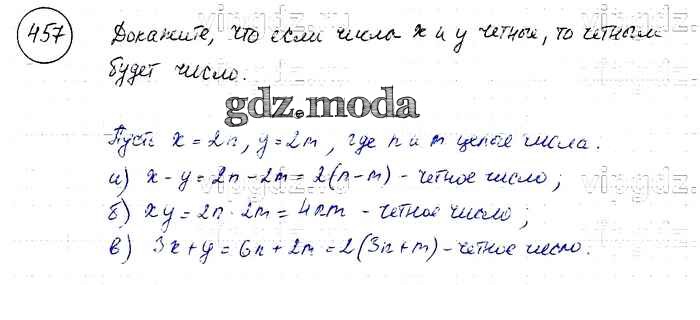 457 Докажите, что если числа x и y четные, то четным
будет число.
gdz.moda
Пусть x = 2n, y = 2m, где n и m целые числа.
а) x - y = 2n - 2m = 2(n-m) - четное число;
б) xy = 2n · 2m = 4nm - четное число;
в) 3x + y = 6n + 2m = 2(3n+m) - четное число.